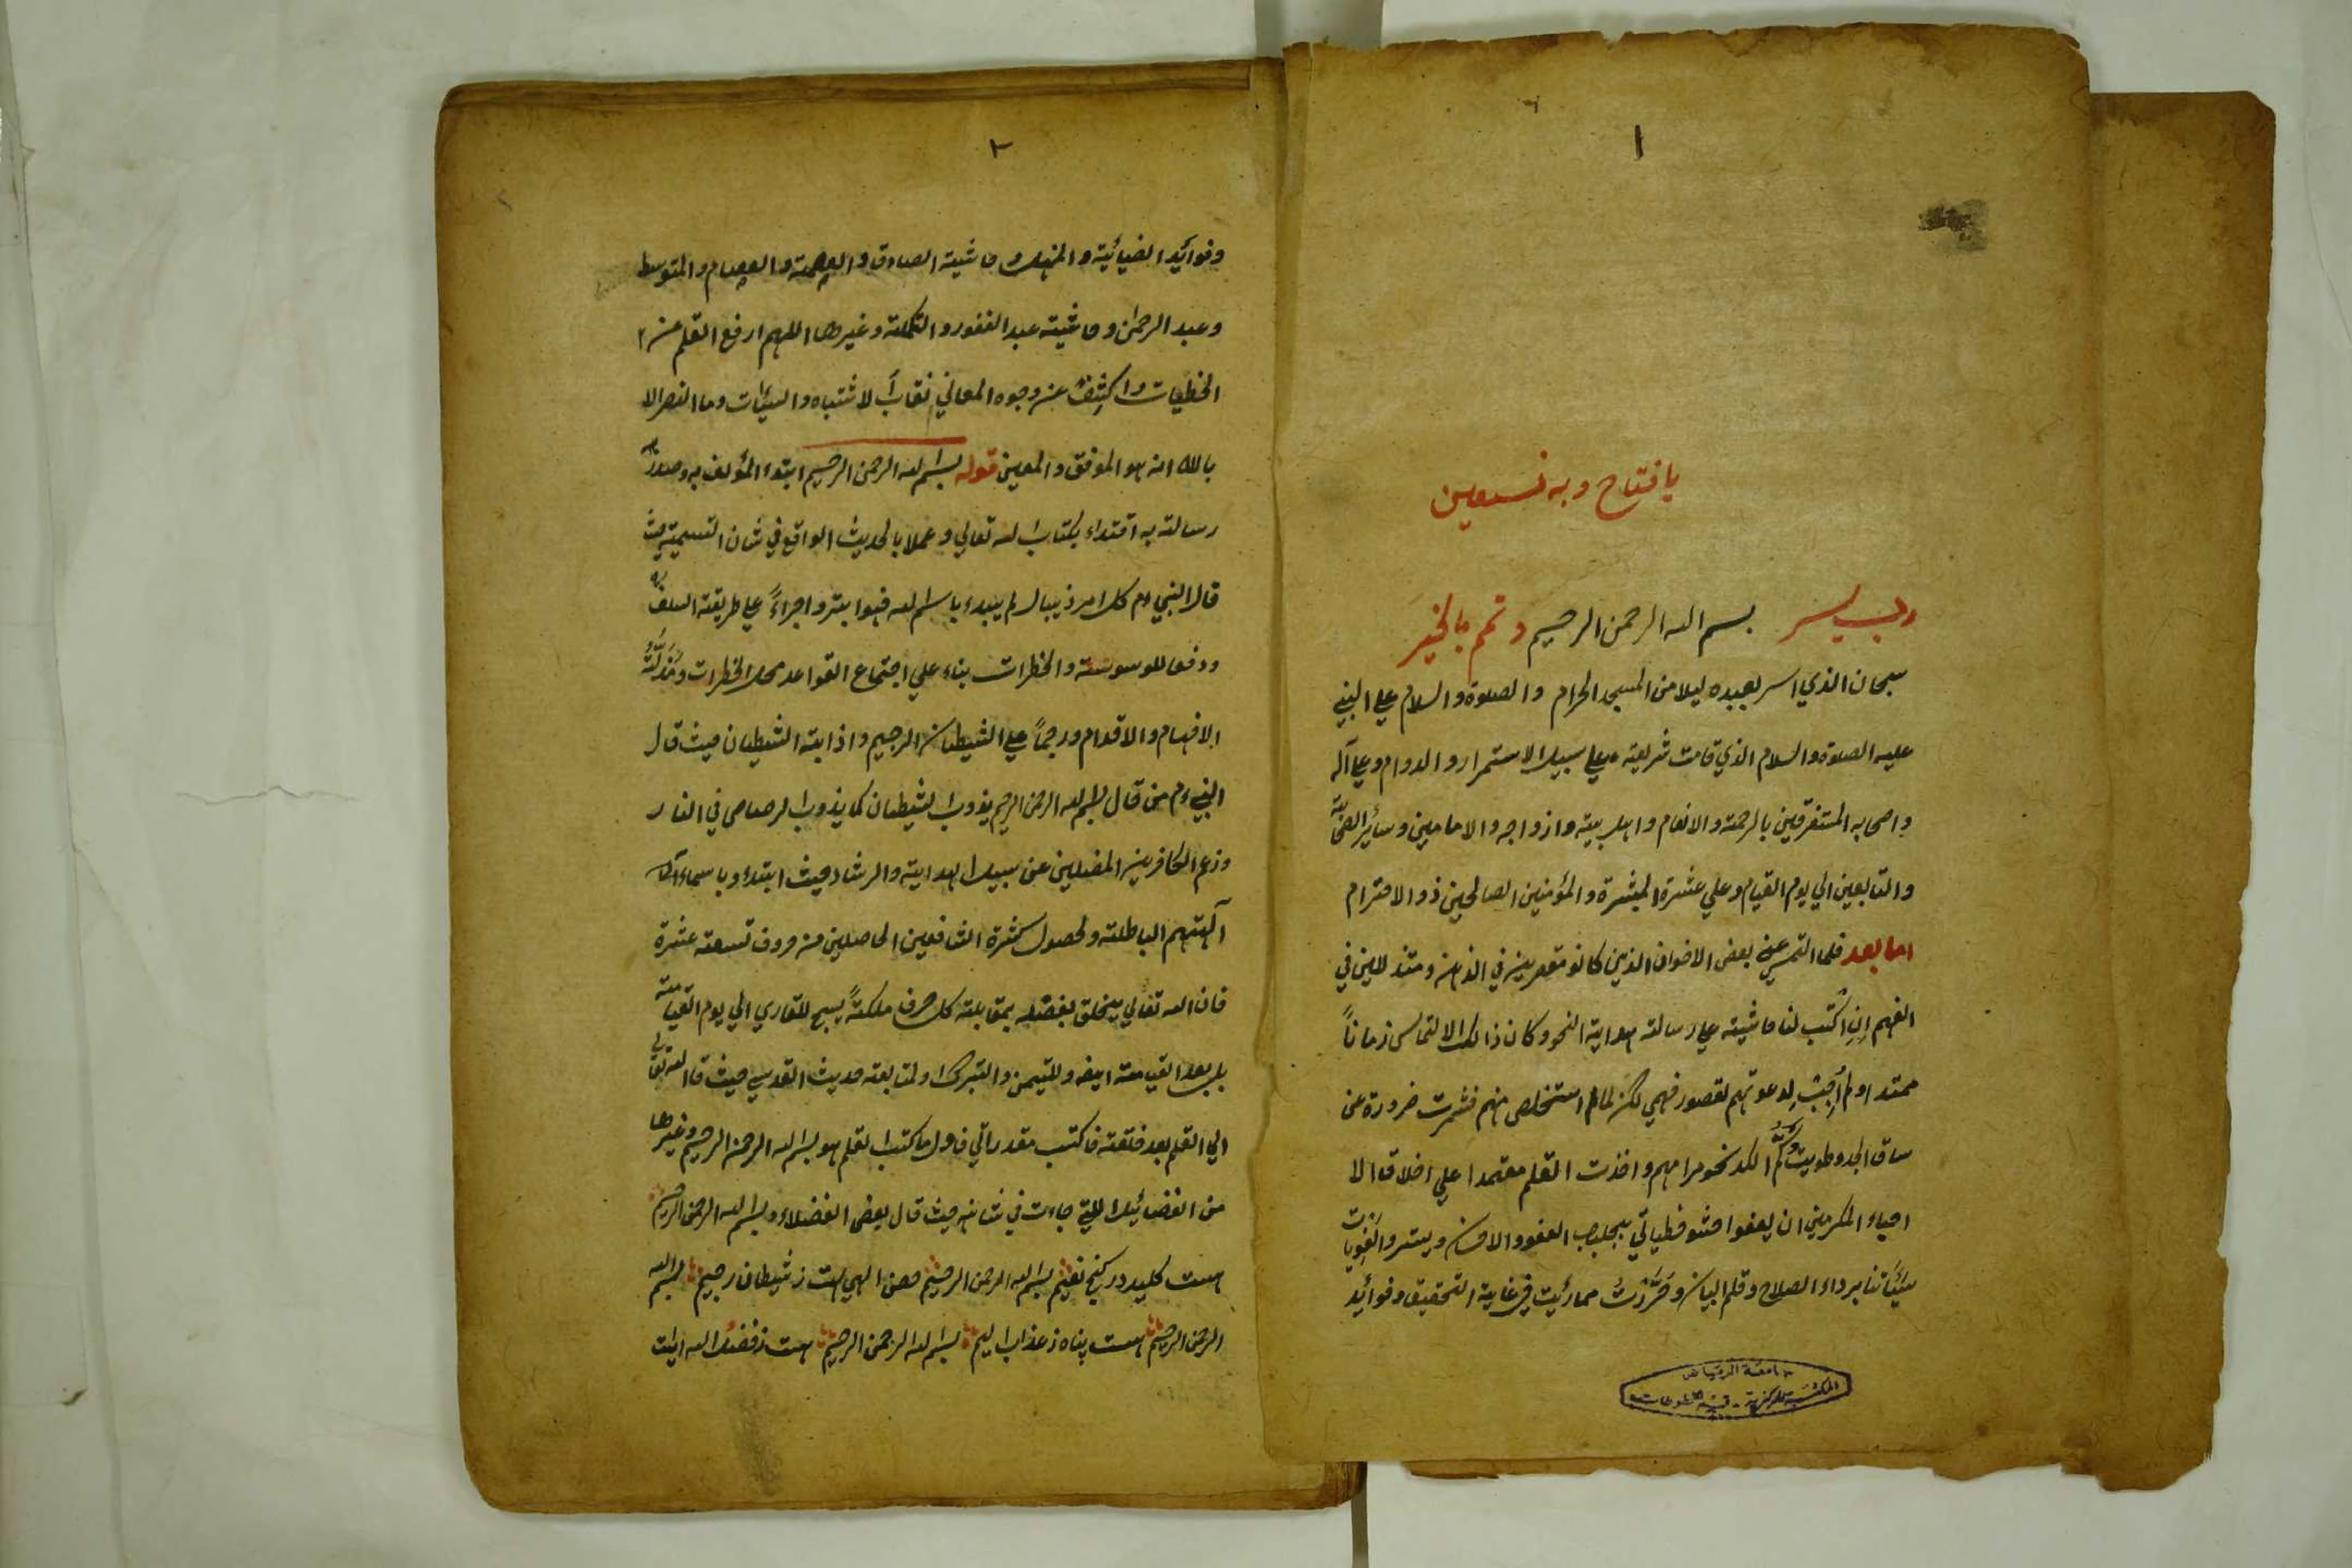 ١
يا فتاح وبه نستعين
رب يسر بسم الله الرحمن الرحيم وتمم بالخير
سبحان الذي اسر بعبده ليلا من المسجد الحرام والصلوة والسلام علي النبي
عليه الصلوة والسلام الذي قامت شريعته علي سبيل الاستمرار والدوام وعلي آله
واصحابه المستغرقين بالرحمة والانعام واهل بيته وازواجه والامامين وسائر الصحابة
والتابعين الي يوم القيام وعلي عشرة المبشرة والمؤمنين الصالحين ذو الاحترام
اما بعد فلما التمس عني بعض الاخوان الذين كانو مقصرين في الذهن ومتذللين في
الفهم ان اكتب لنا حاشيته علي رسالة هداية النحو وكان ذالك الالتماس زماناً
ممتدا ولم أجبت لدعوتهم لقصور فهمي لكن لمالم استخلص منهم فشمرت ضرورة عن
ساق الجد وطويت الكد نحو مرامهم واخذت القلم معتمدا علي اخلاق الا
احباء المكرمين ان يعفوا حشو خطياتي بجلباب العفو والاحسان ويستروا
سيئاتنا برداء الصلاح وقلم البيان وحررت مما رئيت في غاية التحقيق وفوائد
جامعة الرياض
المكتبة المركزية - قسم المخطوطات
٢
وفوائد الضيائية والمنهل وحاشية الصادق والعصمة والعصام والمتوسط
وعبد الرحمن وحاشيته عبد الغفور والتكملة وغيرها اللهم ارفع القلم عن ا
الخطيات واكشف عن وجوه المعاني نقاب الاشتباه والسيئات وما النصر الا
بالله انه هو الموفق والمعين قوله بسم الله الرحمن الرحيم ابتدء المؤلف به وصدر
رسالته به اقتداء بكتاب الله تعالي وعملا بالحديث الواقع في شان التسمية حيث
قال النبي ءم كل امر ذيبال لم يبدء باسم الله فهو ابتر واجراءً علي طريقة السلف
ودفعا للوسوسة والخطرات بناء علي اجتماع القواعد محل الخطرات ومذلة
الافهام والاقدام ورجماً علي الشيطان الرجيم واذابته الشيطان حيث قال
النبي ءم من قال بسم الله الرحمن الرحيم يذوب الشيطان كما يذوب الرصاص في النار
وزعم الكافرين المضلين عن سبيل الهداية والرشاد حيث ابتدء وباسماء
آلهتهم الباطلة ولحصول كثرة الشافعين الحاصلين من حروف تسعة عشرة
فان الله تعالي يخلق بفضله بمقابلة كل حرف ملكةً يسبح للقاري الي يوم القيامة
بل بعد القيامة ايضه وللتيمن والتبرك ولمتابعة حديث القدسي حيث قال الله تعالي
الي القلم بعد خلقته فاكتب مقدراتي فاول ما كتب القلم هو بسم الله الرحمن الرحيم وغيرها
من الفضائل اللتي جاءت في شانه حيث قال بعض الفضلاء بسم الله الرحمن الرحيم
هست كليد در كنج نعيم بسم الله الرحمن الرحيم حصن الهي است ز شيطان رجيم بسم الله
الرحمن الرحيم هست پناه ز عذاب اليم بسم الله الرحمن الرحيم هست ز فضل الله